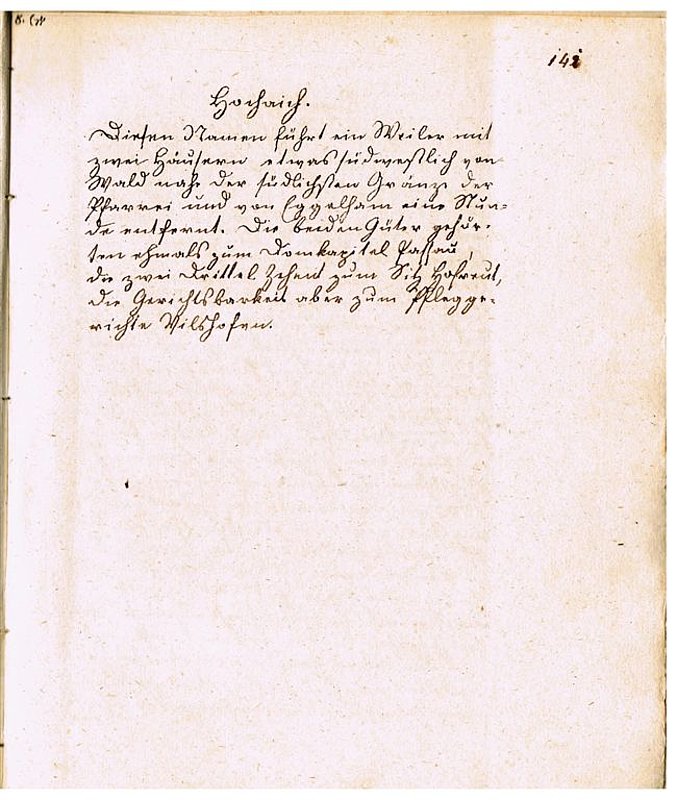 142
Hochaich.
Diesen Namen führt ein Weiler mit
zwei Häusern etwas südwestlich von
Wald nahe der südlichsten Gränze der
Pfarrei und von Eggelham eine Stun-
de entfernt. Die beiden Güter gehör-
ten ehmals zum Domkapitel Passau,
die zwei Drittel Zehent zum Sitz Hofreut,
die Gerichtsbarkeit aber zum Pflegge-
richte Vilshofen.